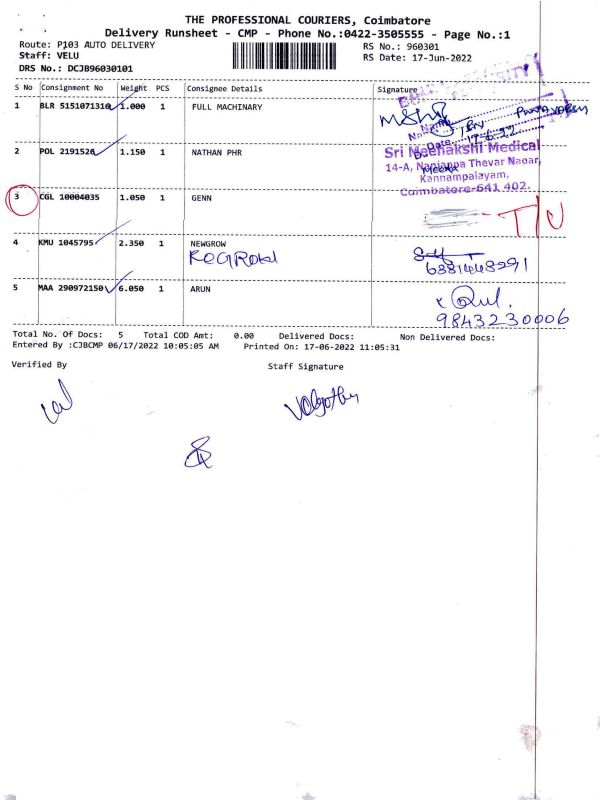 THE PROFESSIONAL COURIERS, Coimbatore
Delivery Runsheet - CMP - Phone No.:0422-3505555 - Page No.:1
Route: P103 AUTO DELIVERY RS No.: 960301
Staff: VELU RS Date: 17-Jun-2022
DRS No.: DCJB96030101
S No Consignment No Weight PCS Consignee Details Signature
1 BLR 5151071310 1.000 1 FULL MACHINARY
Name
Date 17-6-22
2 POL 2191526 1.150 1 NATHAN PHR
Sri Meenakshi Medical
14-A, Nanjappa Thevar Nagar,
Meena
Kannampalayam,
Coimbatore-641 402.
3 CGL 10004035 1.050 1 GENN
4 KMU 1045795 2.350 1 NEWGROW
6381448291
5 MAA 290972150 6.050 1 ARUN
9843230006
Total No. Of Docs: 5 Total COD Amt: 0.00 Delivered Docs: Non Delivered Docs:
Entered By :CJBCMP 06/17/2022 10:05:05 AM Printed On: 17-06-2022 11:05:31
Verified By Staff Signature